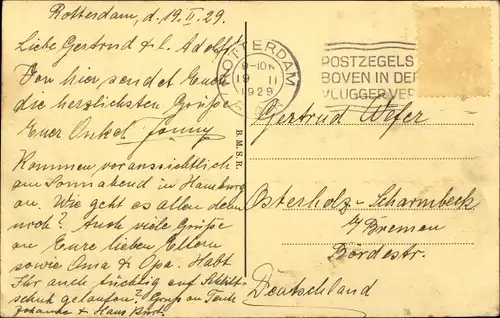 Rotterdam, d. 19.II.29.
Liebe Gertrud & l. Adolf!
Von hier sendet Euch
die herzlichsten Grüße
Euer Onkel Jonny
Kommen voraussichtlich
am Sonnabend in Hamburg
an. Wie geht es allen denn
noch? Auch viele Grüße
an Eure lieben Eltern
sowie Oma & Opa. Habt
Ihr auch tüchtig auf Schlitt-
schuh gelaufen? Gruß an Tante
Johanna & Hans
B.M.S.R.
ROTTERDAM
9-10
19 II
1929
POSTZEGELS
BOVEN IN DE
VLUGGER VER
Gertrud Wefer
Osterholz-Scharmbeck
b/Bremen
Bördestr.
Deutschland